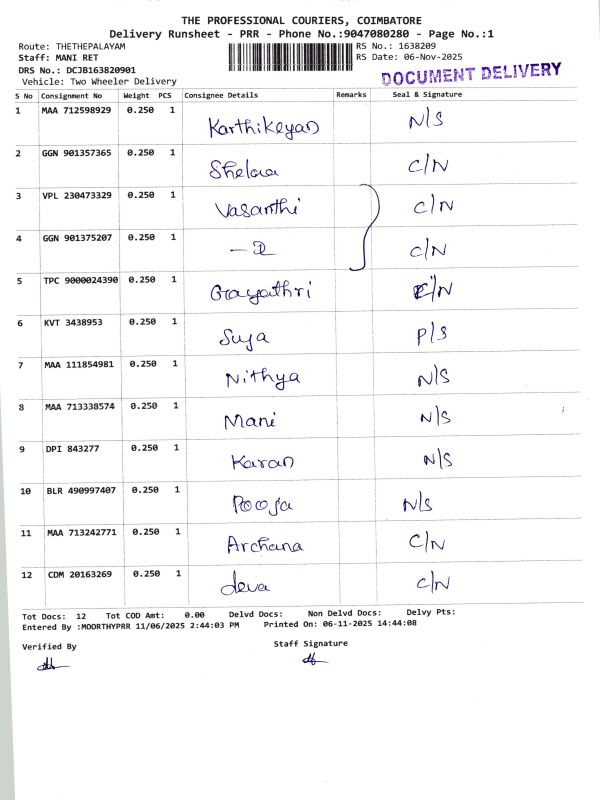 THE PROFESSIONAL COURIERS, COIMBATORE
Delivery Runsheet - PRR - Phone No.:9047080280 - Page No.:1
Route: THETHEPALAYAM RS No.: 1638209
Staff: MANI RET RS Date: 06-Nov-2025
DRS No.: DCJB163820901
DOCUMENT DELIVERY
Vehicle: Two Wheeler Delivery
S No Consignment No Weight PCS Consignee Details Remarks Seal & Signature
1 MAA 712598929 0.250 1 Karthikeyan N/S
2 GGN 901357365 0.250 1 Shelaa C/N
3 VPL 230473329 0.250 1 Vasanthi C/N
4 GGN 901375207 0.250 1 C/N
5 TPC 9000024390 0.250 1 Gayathri C/N
6 KVT 3438953 0.250 1 Suja P/S
7 MAA 111854981 0.250 1 Nithya N/S
8 MAA 713338574 0.250 1 Mani N/S
9 DPI 843277 0.250 1 Karan N/S
10 BLR 490997407 0.250 1 Pooja N/S
11 MAA 713242771 0.250 1 Archana C/N
12 CDM 20163269 0.250 1 deva C/N
Tot Docs: 12 Tot COD Amt: 0.00 Delvd Docs: Non Delvd Docs: Delvy Pts:
Entered By :MOORTHYPRR 11/06/2025 2:44:03 PM Printed On: 06-11-2025 14:44:08
Verified By Staff Signature